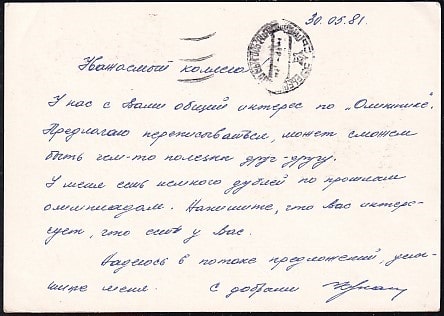 30.05.81.
Уважаемый коллега
У нас с Вами общий интерес по "Олимпике".
Предлагаю переписываться, может сможем
быть чем-то полезны друг-другу.
У меня есть немного дублей по прошлым
олимпиадам. Напишите, что Вас интере-
сует, что есть у Вас.
Надеюсь в потоке предложений, услы-
шите меня. С добрыми